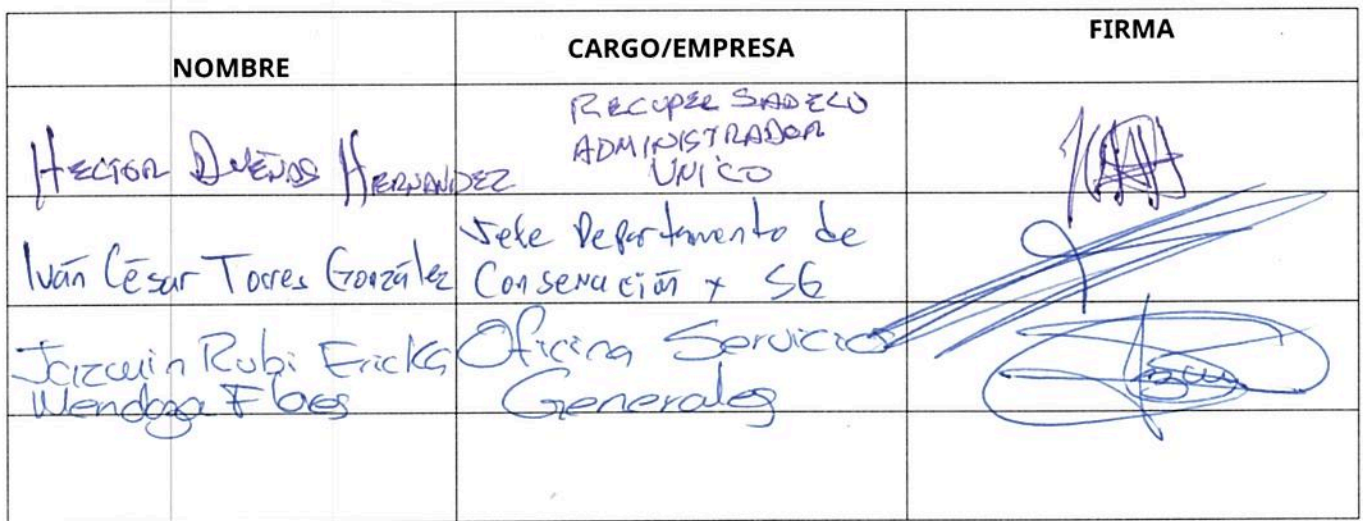 NOMBRE
CARGO/EMPRESA
FIRMA
HECTOR DUEÑAS HERNANDEZ
RECUPER SADECU
ADMINISTRADOR
UNICO
Iván César Torres González
Jefe Departamento de
Conservación y SG
Jazmin Rubi Ericka
Mendoza Flores
Oficina Servicios
Generales